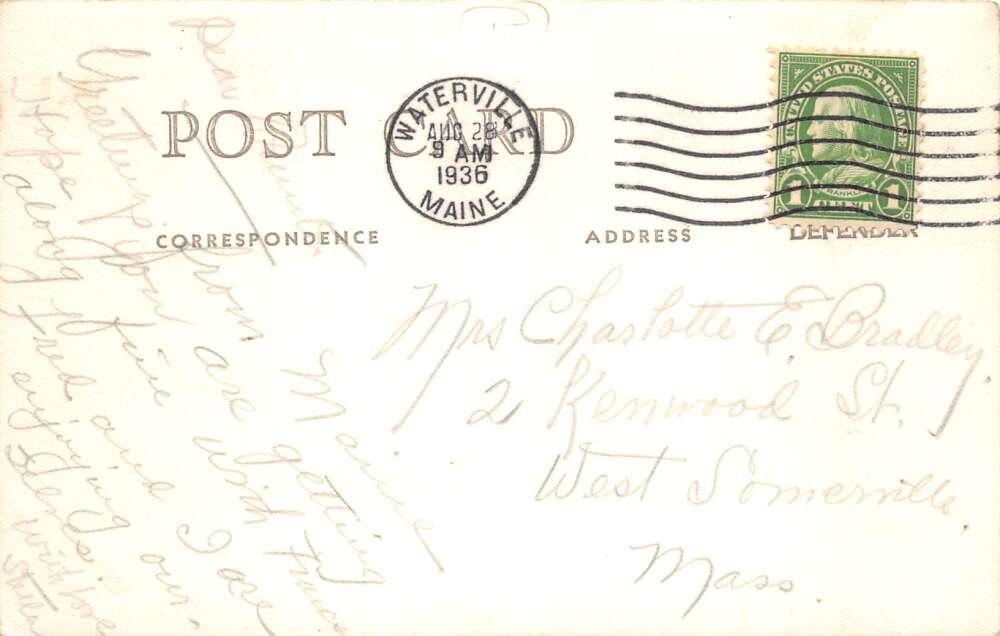 POST CARD
CORRESPONDENCE
ADDRESS
WATERVILLE
AUG 28
9 AM
1936
MAINE
UNITED STATES POSTAGE
FRANKLIN
1 CENT 1
DEFENDER
Dear
Greetings from Maine
Hope you are getting
along fine with
Fred and I are
enjoying our
with love
Mrs Charlotte E Bradley
2 Kenwood St.
West Somerville
Mass